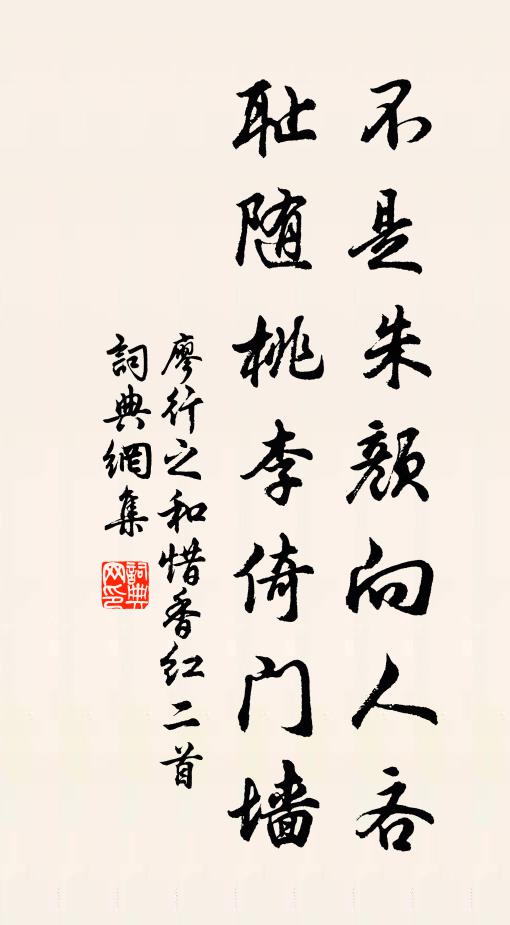 不是朱颜向人吝
耻随桃李倚门墙
廖行之和惜香红二首
詞典網集
詞典网印